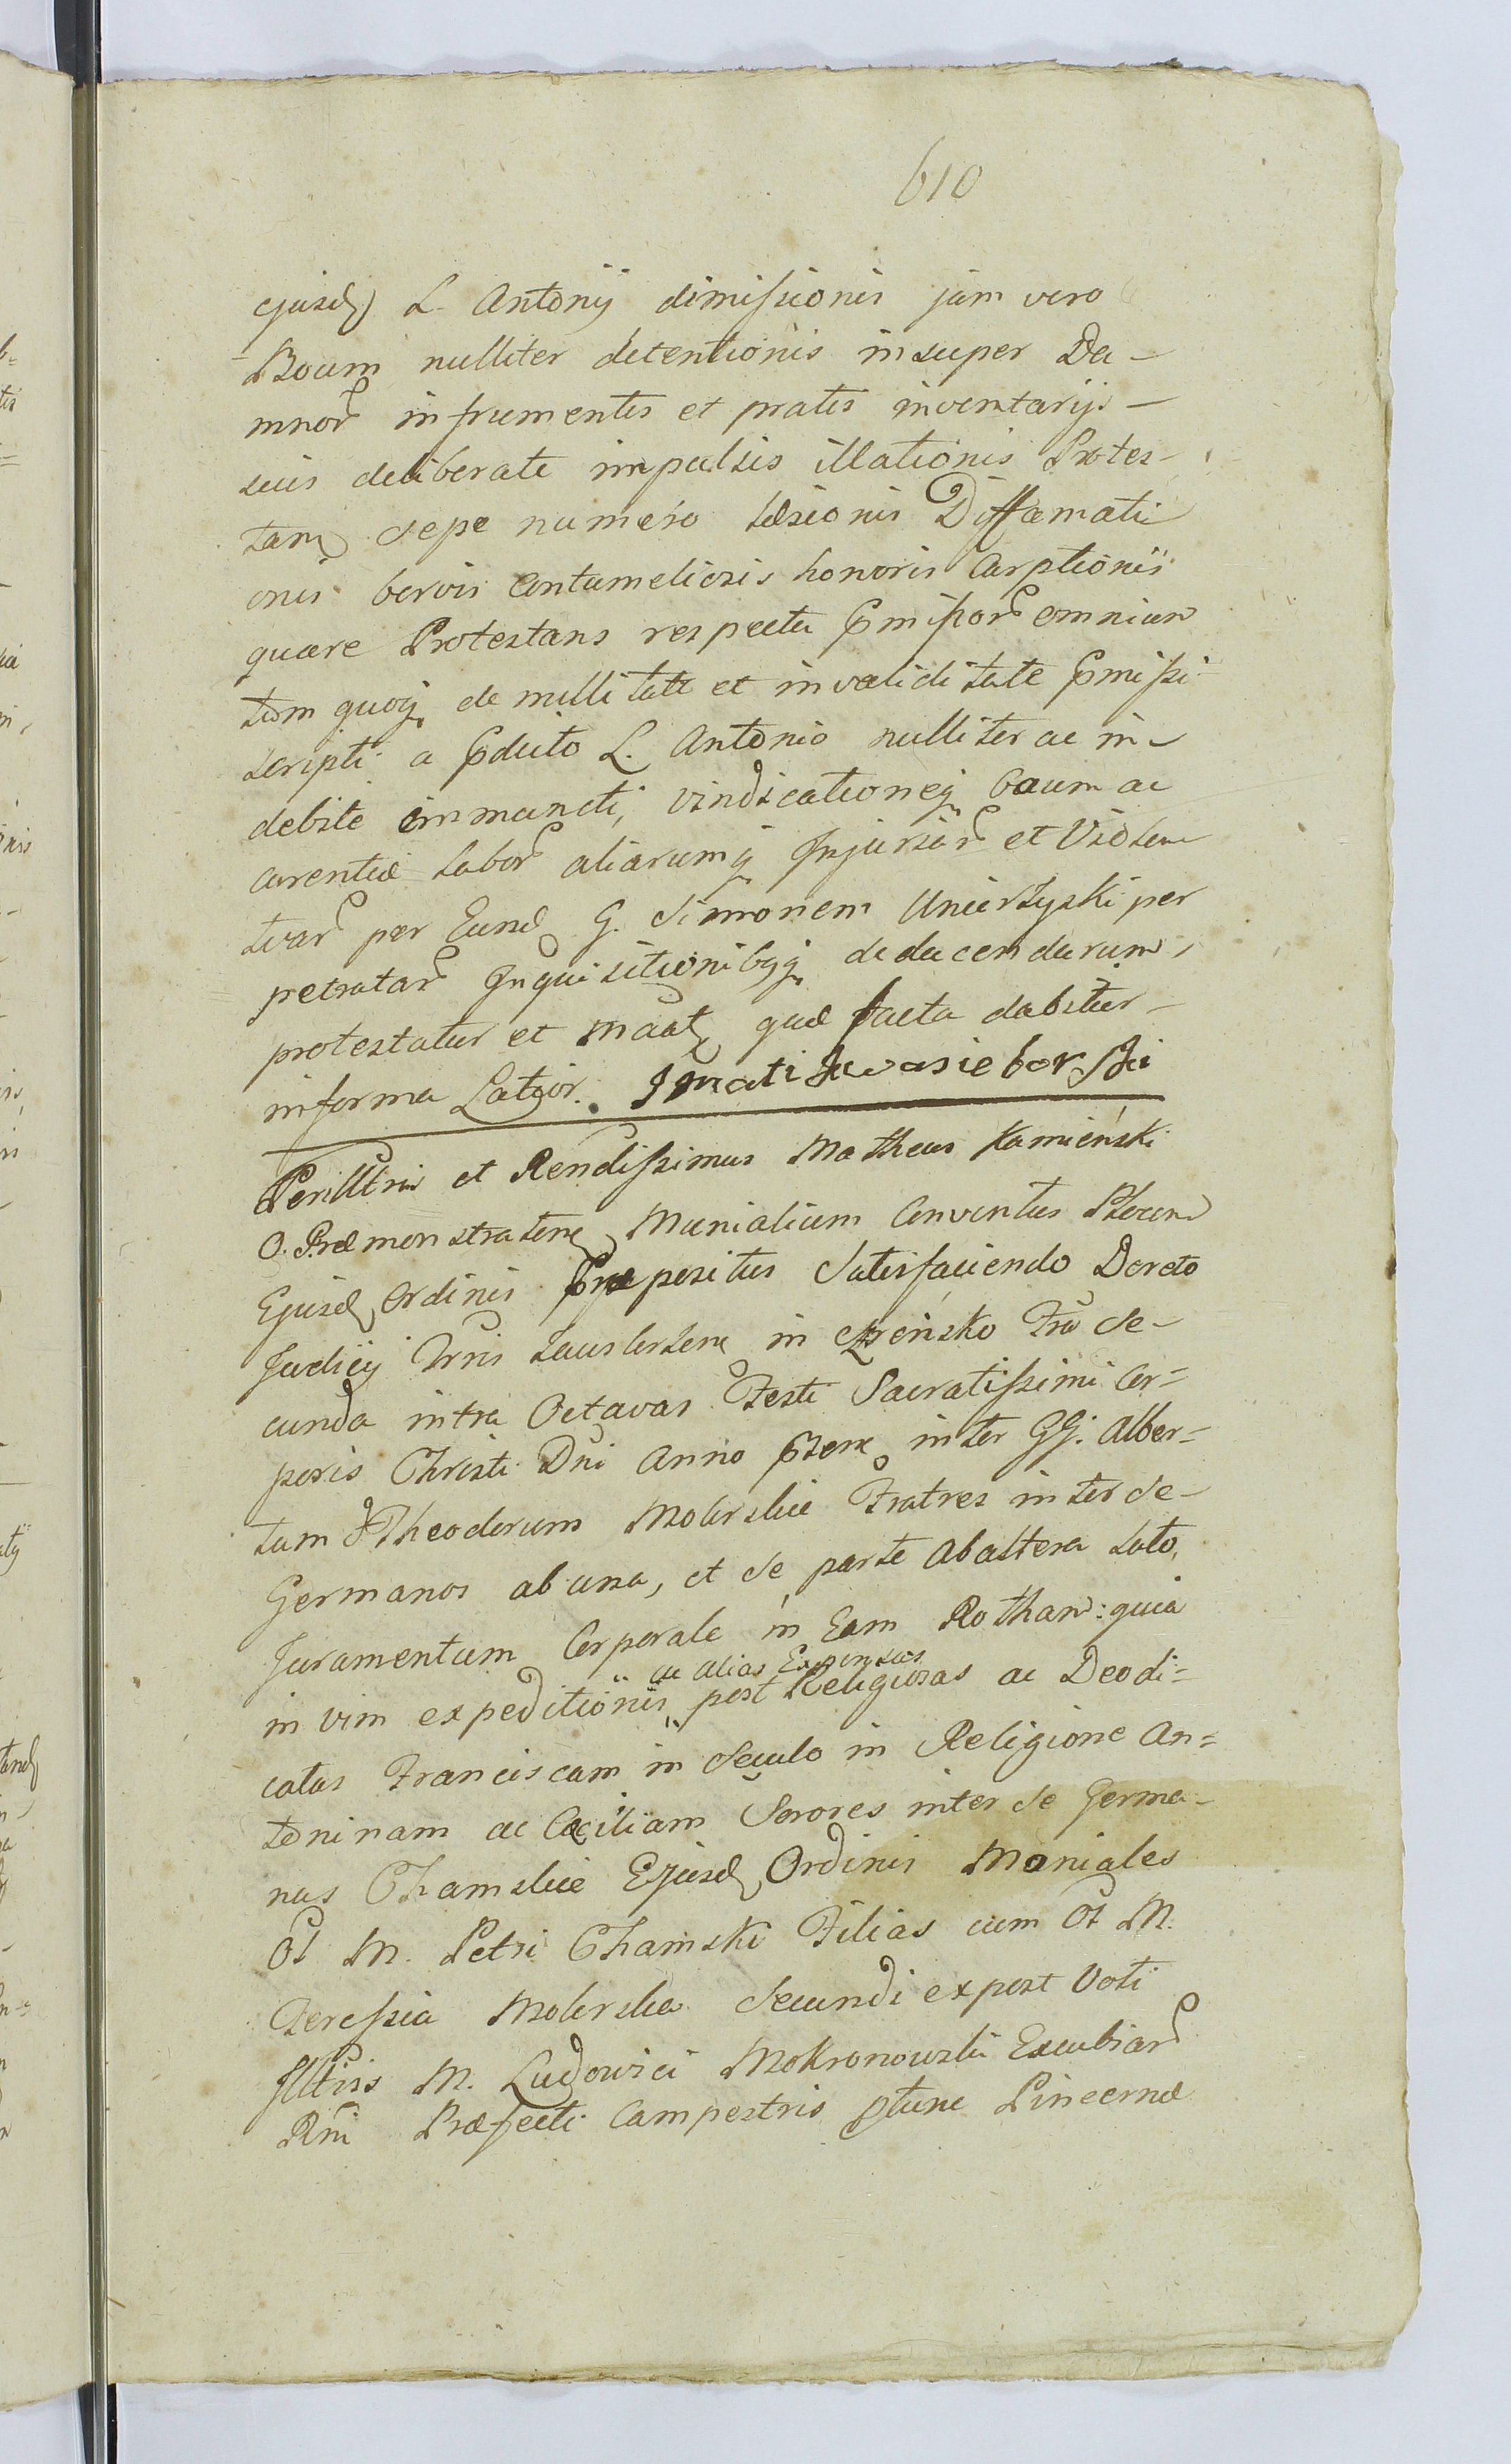 610
ejusd L. Antonij dimissionis jam vero
Boum nulliter detentionis insuper Da-
mnor in frumentis et pratis inventarijs-
suis deliberate impulsis illationis Protes-
tans sepe numero læsionis Diffamati
onis verbis contumeliosis honoris carptionis
quare Protestans respectu Pmissor omnium
tum quoq de nullitate et invaliditate Pmissi
scripti a Pdicto L. Antonio nulliter ac in-
debite emuncti, vindicationeq Boum ac
carentiæ labor aliarumq Injuriar et Violen
tiar per Eund G. Simonem Unierzyski per
petratar Inquisitionibqq deducendarum,
protestatur et maat quæ facta dabitur-
in forma Latior. Ignati Kwasieborski
Perilltris et Rendissimus Matheus Kamieński
O. Præmonstraten Munialium Conventus Plocen
Ejusd Ordinis Præpositus Satisfaciendo Dcreto
Judicij Trris Zawskrzen in Szreńsko Fria Se-
cunda intra Octavas Festi Sacratissimi Cor=
poris Christi Dni Anno Psen inter GG. Alber=
tum & Theodorum Mdzewskie Fratres inter se-
Germanos ab una, et se parte ab altera lato,
Juramentum Corporale in Eam Rotham: quia
in vim expeditionis ac alias Expensas post Religiosas ac Deodi=
catas Franciscam in Seculo in Religione An=
toninam ac Cæciliam Sorores inter se Germa-
nas Chamskie Ejusd Ordinis Moniales
Ol M. Petri Chamski Filias cum Ol M.
Teressia Secundi expost Voti
Illtris M. Ludovici Mokronowski Excubiar
Rni Præfecti Campestris ptunc Pincernæ